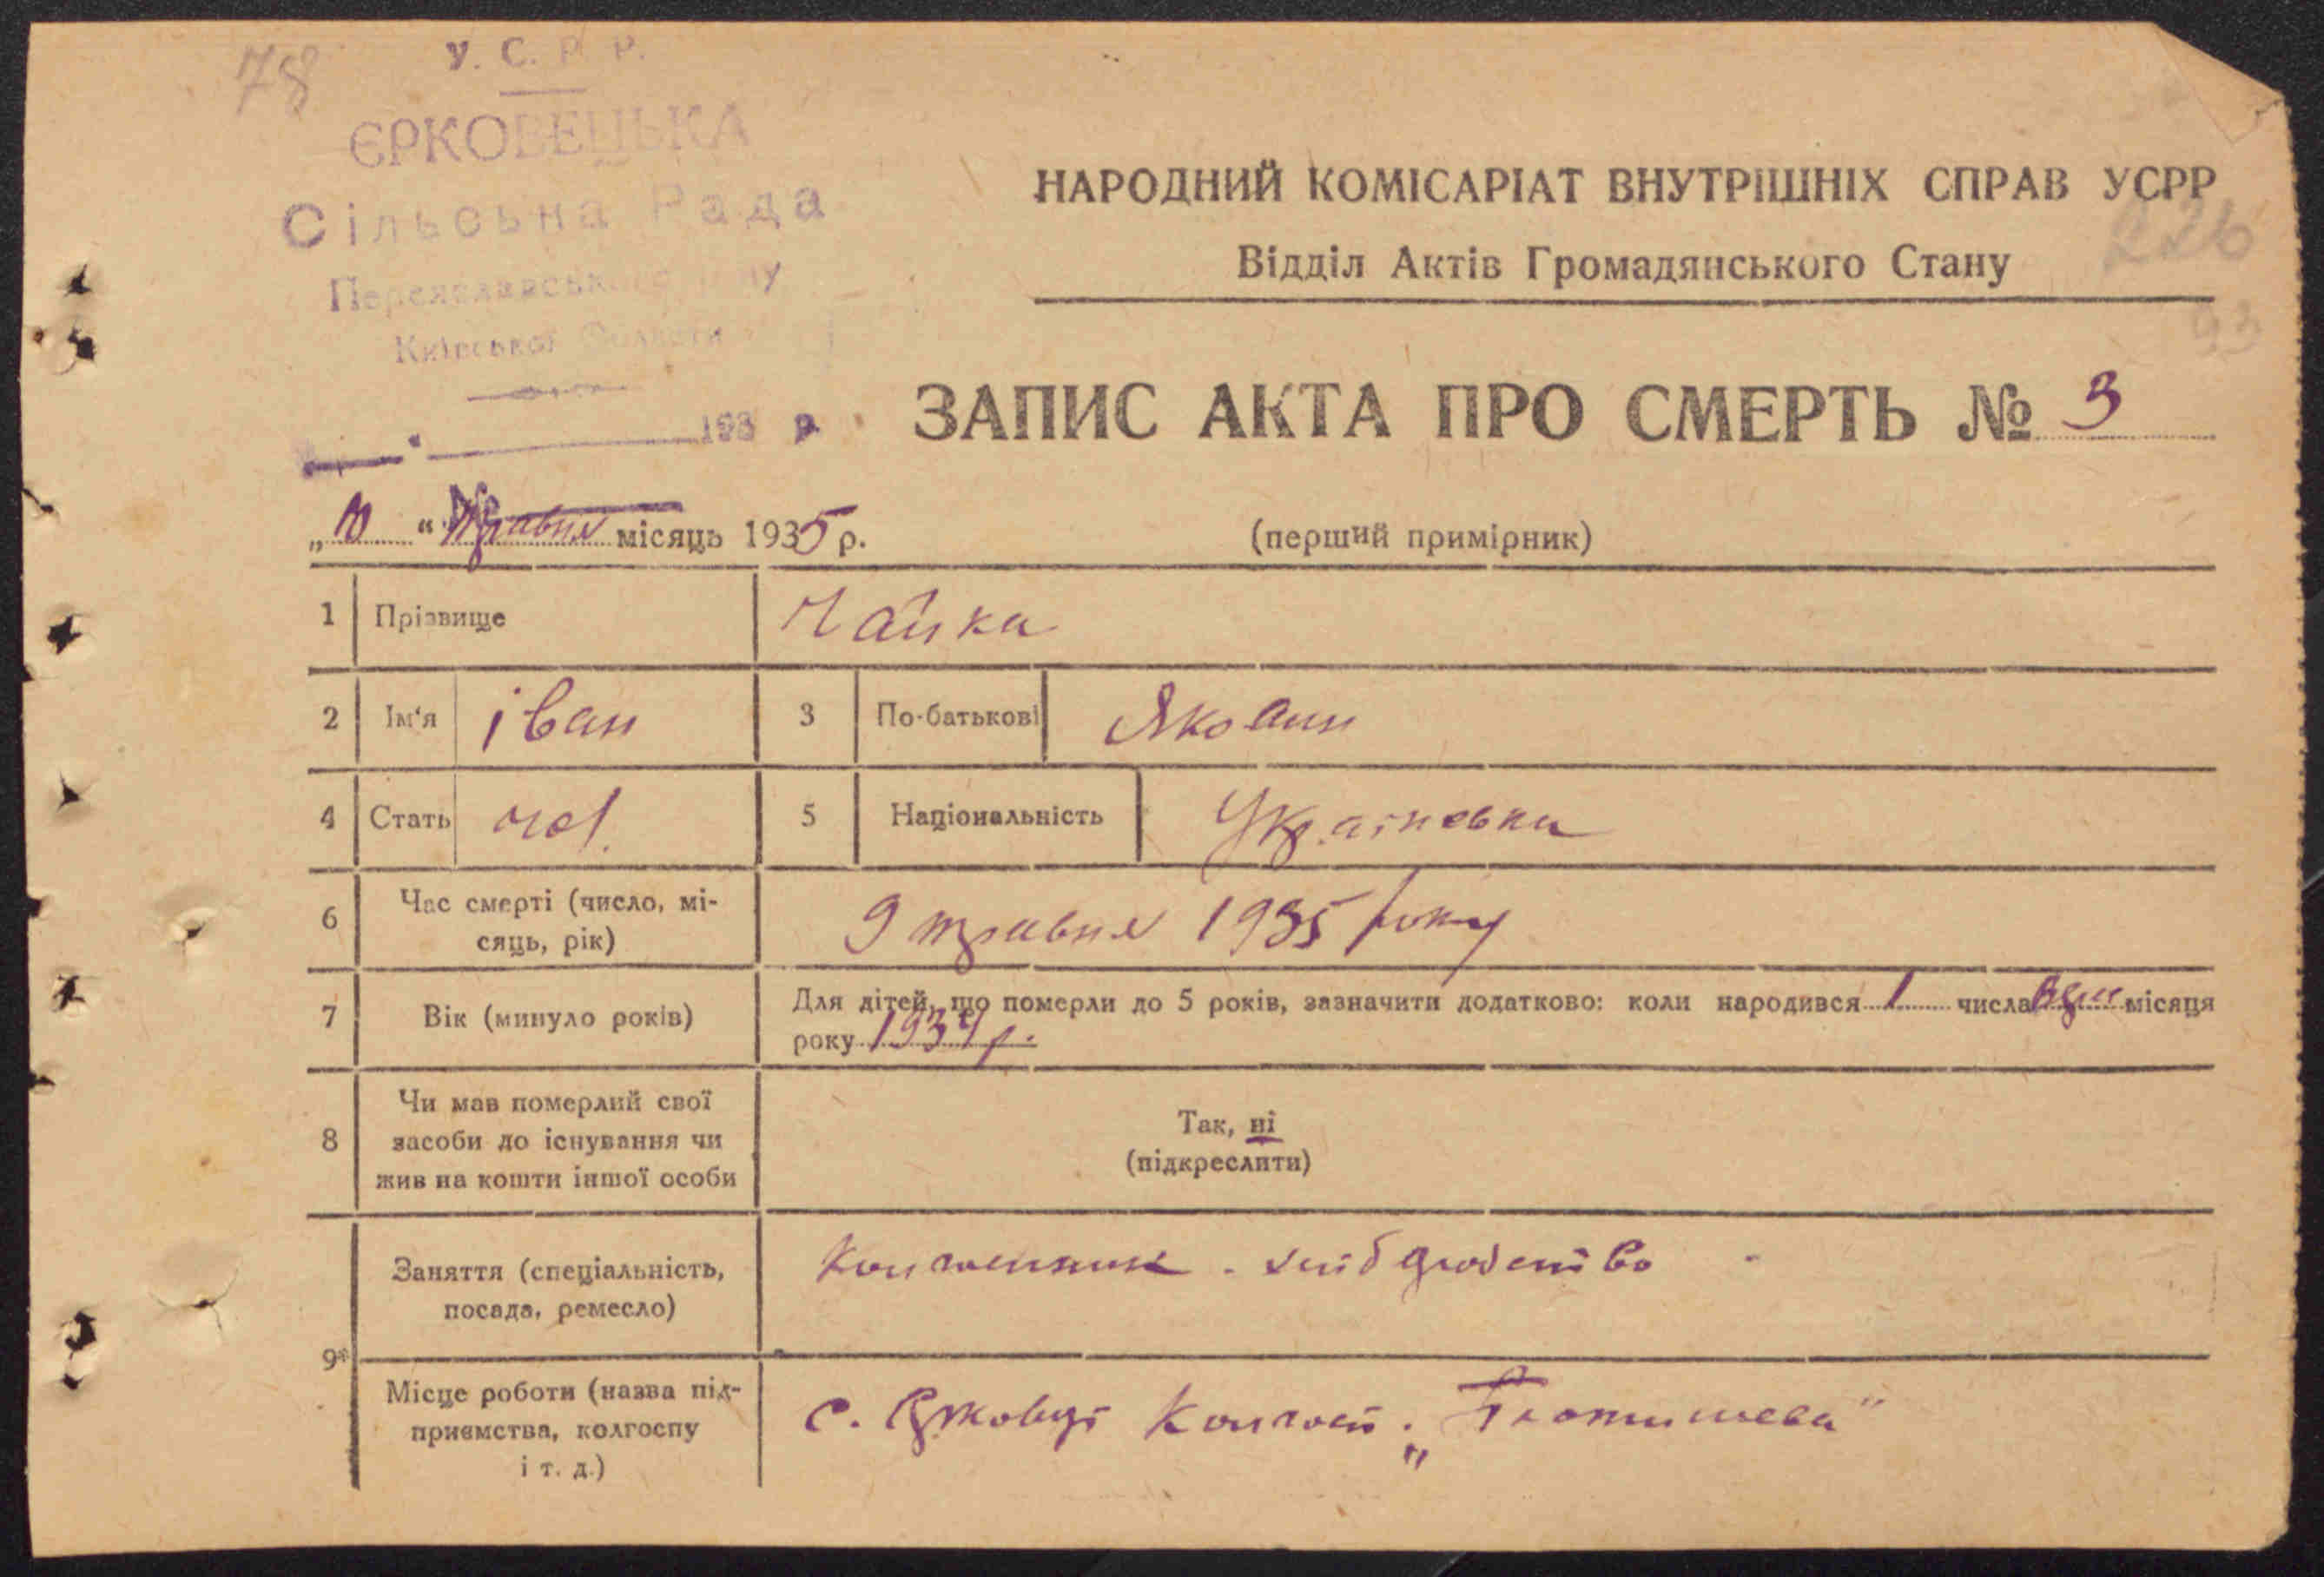 78
У. С. Р. Р.
ЄРКОВЕЦЬКА
Сільська Рада
Переяславського
Київської Области
193 р.
НАРОДНИЙ КОМІСАРІАТ ВНУТРІШНІХ СПРАВ УСРР
Відділ Актів Громадянського Стану
226
93
ЗАПИС АКТА ПРО СМЕРТЬ № 3
„10“ Травня місяць 1935 р.
(перший примірник)
1 Прізвище Чайка
2 Ім'я іван 3 По-батькові
4 Стать чол. 5 Національність
6 Час смерті (число, мі-
сяць, рік) 9 травня 1935 року
7 Вік (минуло років) Для дітей, що померли до 5 років, зазначити додатково: коли народився 1 числа місяця
року 1934 р.
8 Чи мав померлий свої
засоби до існування чи
жив на кошти іншої особи
Так, ні
(підкреслити)
9* Заняття (спеціальність,
посада, ремесло)
Місце роботи (назва під-
приємства, колгоспу
і т. д.)
с. Єрковці